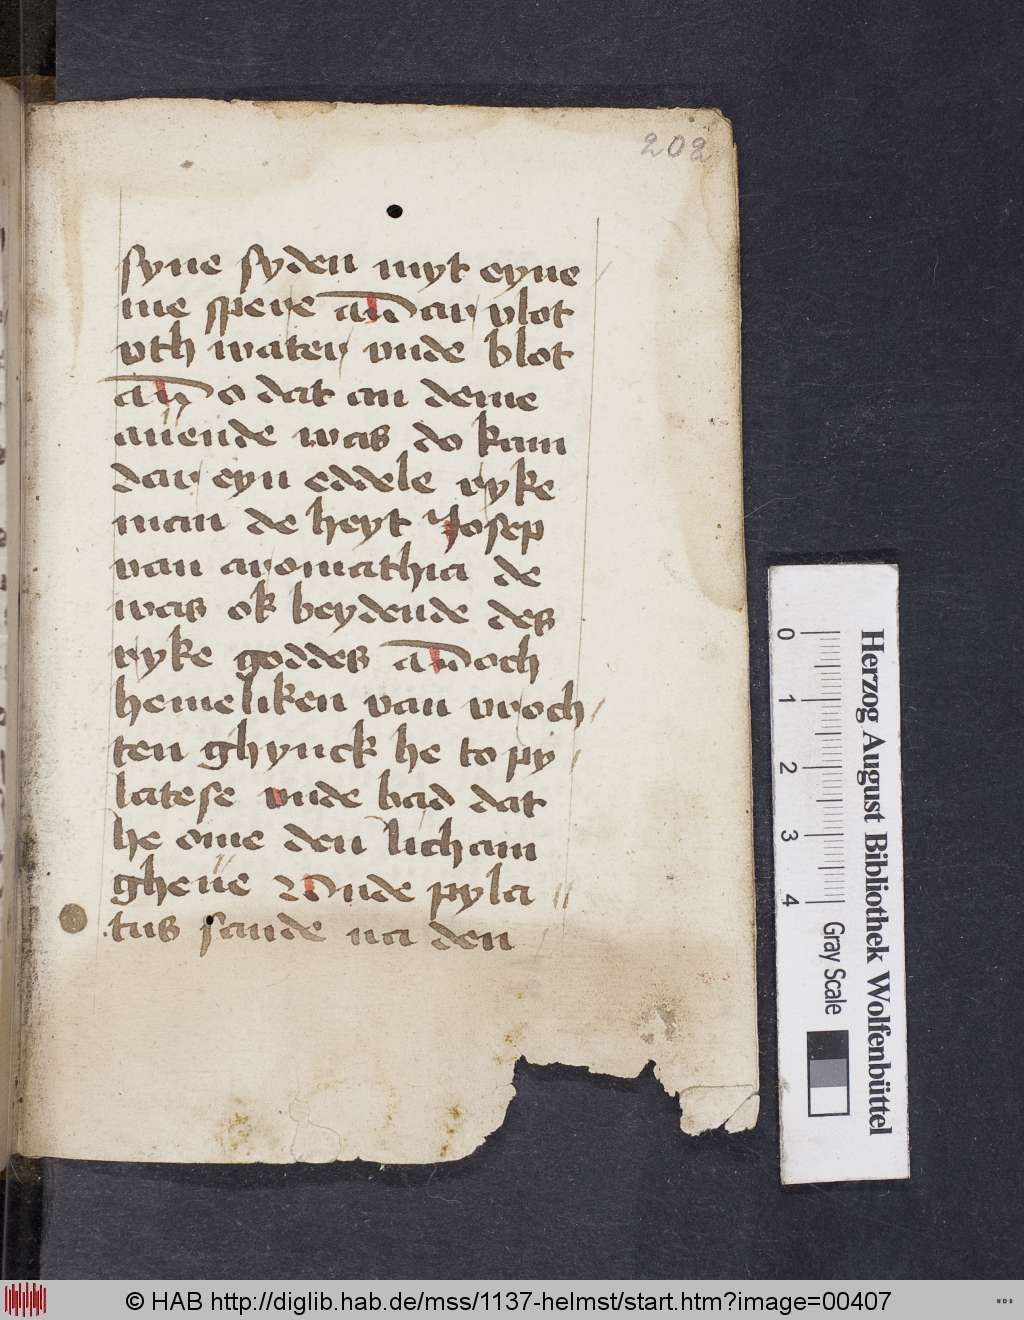 202
syne syden myt eyne
me spere vn̄ dar vlot
vth water vnde blot
Alzo dat an deme
auende was do kam
dar eyn eddele ryke
man de heyt Josep
van aromathia de
was ok beydende des
ryke goddes doch
hemeliken van vroch
ten ghynck he to py
latese vnde bad dat
he ome den licham
gheue Vnde pyla
tus sande na den
Herzog August Bibliothek Wolfenbüttel
0 1 2 3 4
Gray Scale
© HAB http://diglib.hab.de/mss/1137-helmst/start.htm?image=00407